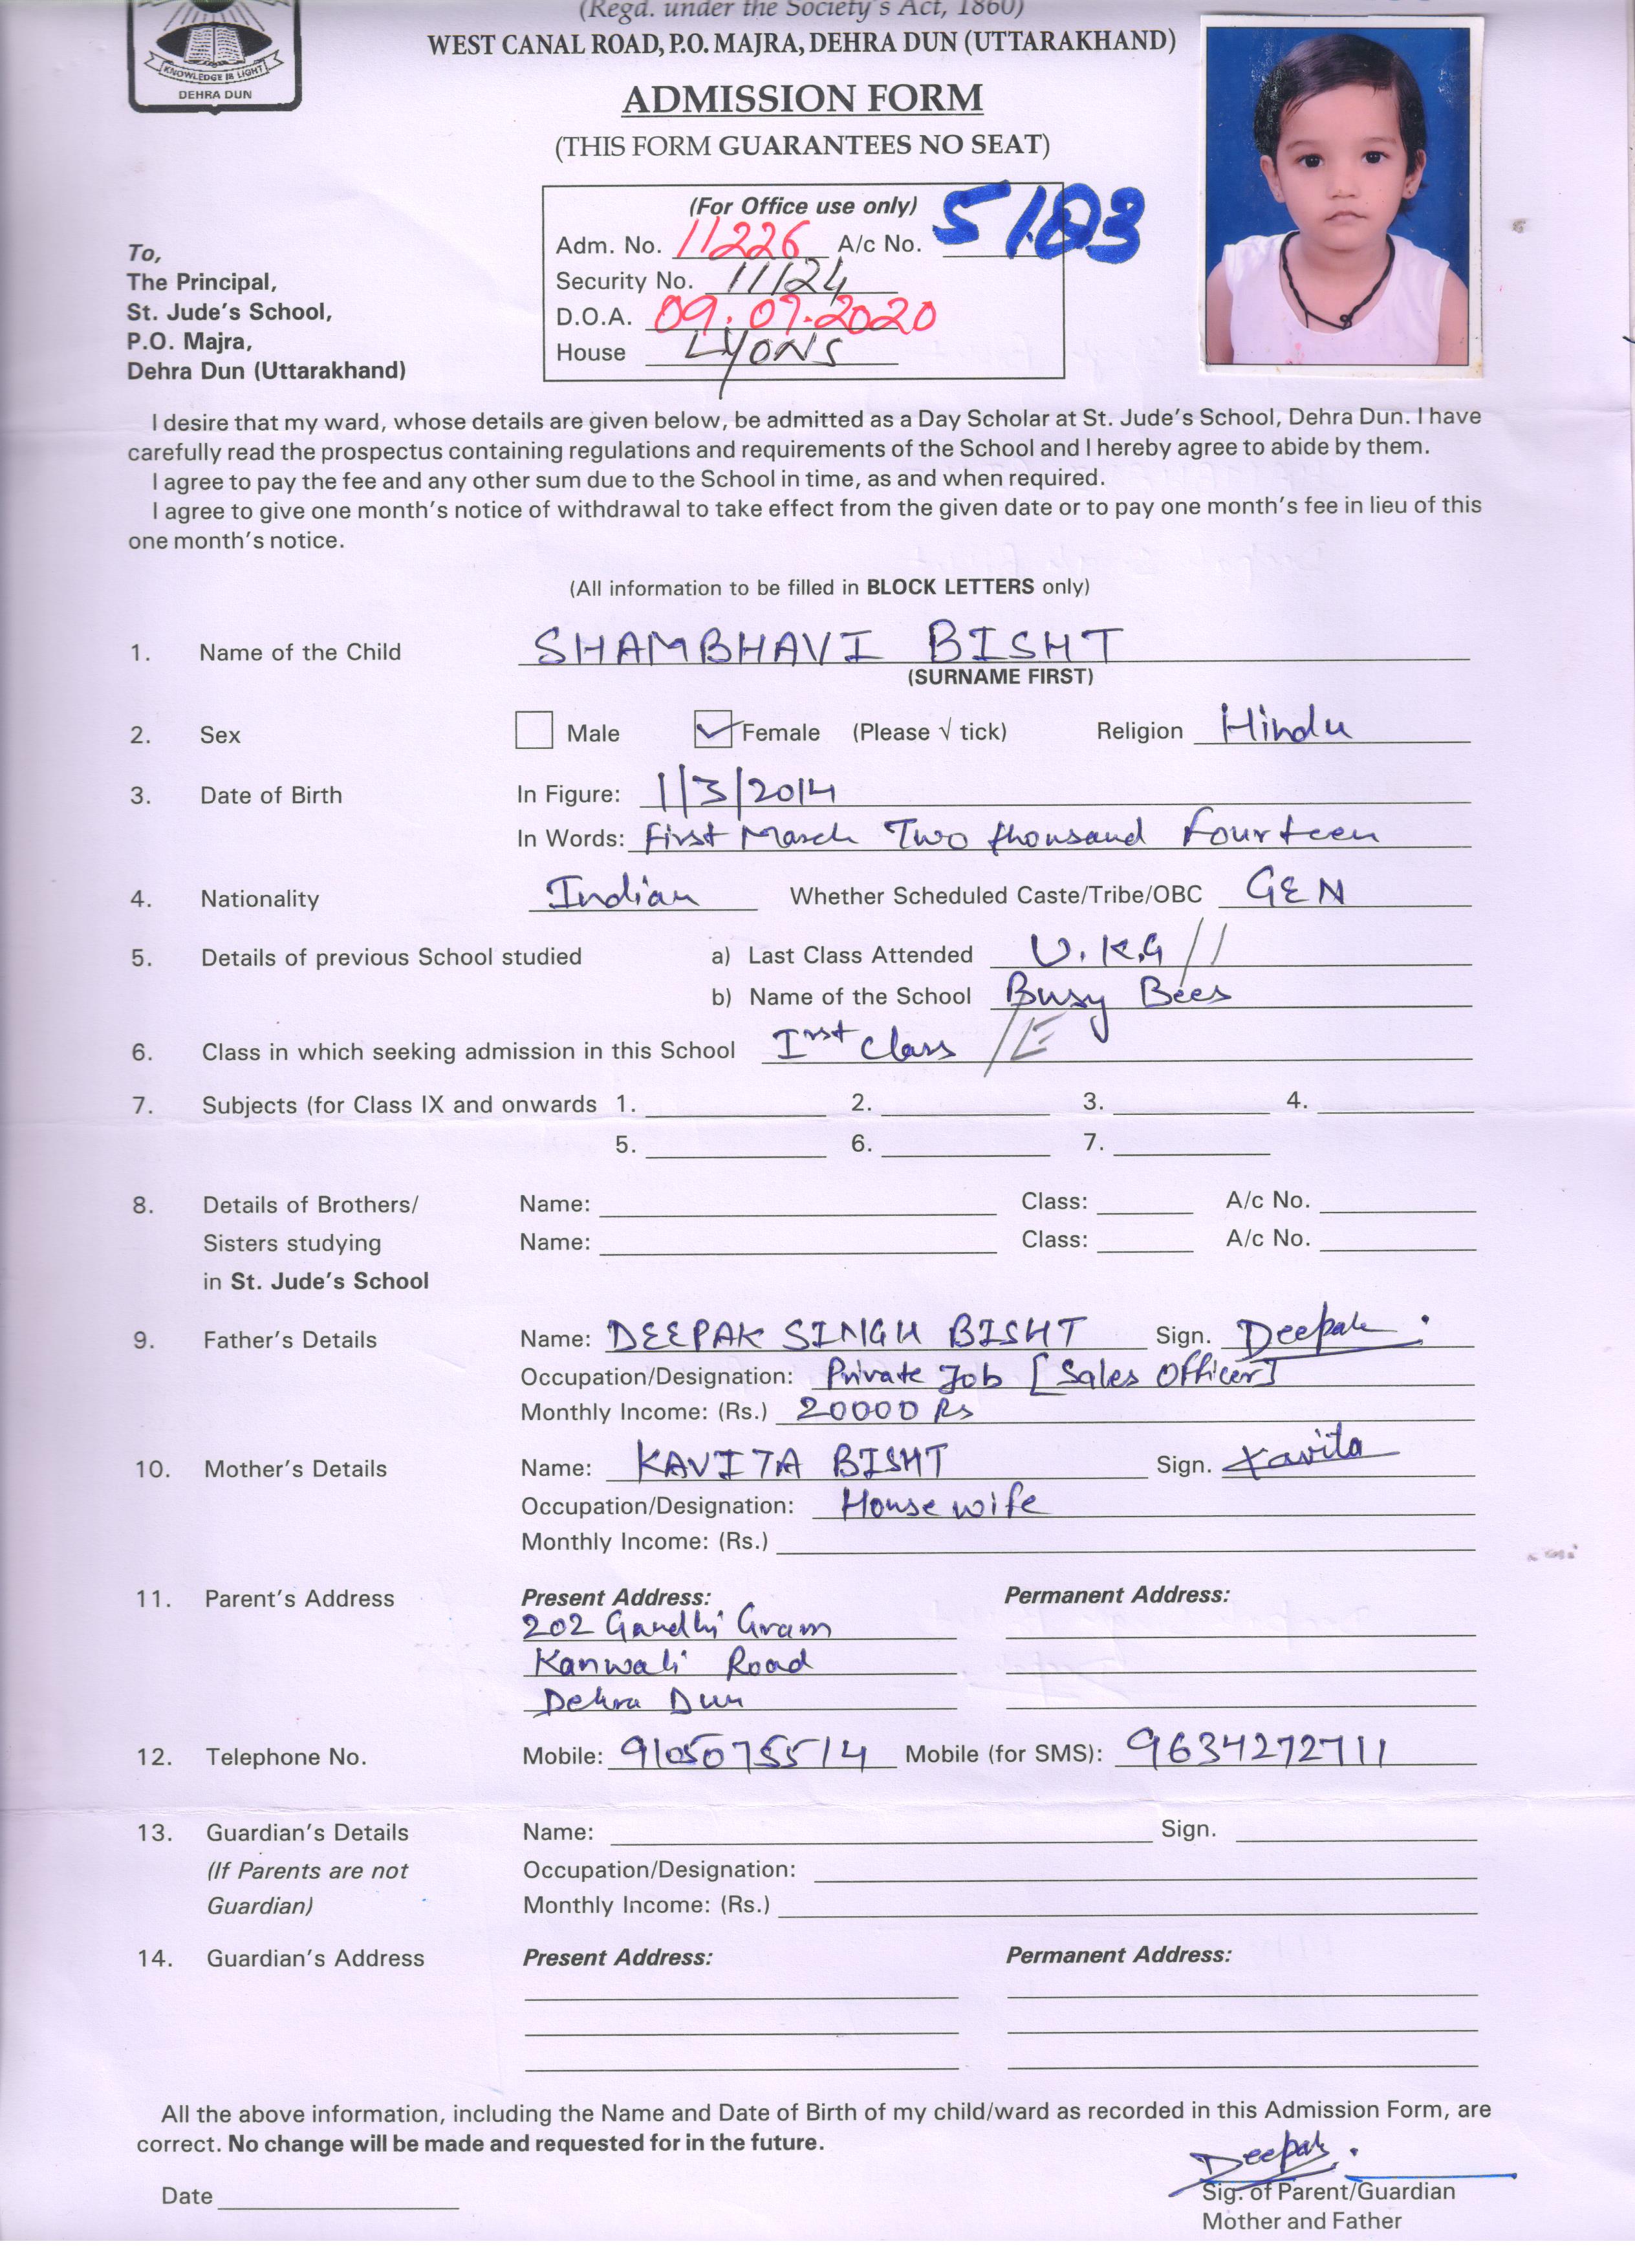 (Regd. under the Society's Act, 1860)
WEST CANAL ROAD, P.O. MAJRA, DEHRA DUN (UTTARAKHAND)
KNOWLEDGE IS LIGHT
DEHRA DUN
ADMISSION FORM
(THIS FORM GUARANTEES NO SEAT)
(For Office use only)
Adm. No. 11226 A/c No. 5103
Security No. 11124
D.O.A. 09.07.2020
House LYONS
To,
The Principal,
St. Jude's School,
P.O. Majra,
Dehra Dun (Uttarakhand)
I desire that my ward, whose details are given below, be admitted as a Day Scholar at St. Jude's School, Dehra Dun. I have
carefully read the prospectus containing regulations and requirements of the School and I hereby agree to abide by them.
I agree to pay the fee and any other sum due to the School in time, as and when required.
I agree to give one month's notice of withdrawal to take effect from the given date or to pay one month's fee in lieu of this
one month's notice.
(All information to be filled in BLOCK LETTERS only)
1. Name of the Child SHAMBHAVI BISHT
(SURNAME FIRST)
2. Sex Male Female (Please √ tick) Religion Hindu
3. Date of Birth In Figure: 1/3/2014
In Words: First March Two thousand Fourteen
4. Nationality Indian Whether Scheduled Caste/Tribe/OBC GEN
5. Details of previous School studied a) Last Class Attended U.K.G
b) Name of the School Busy Bees
6. Class in which seeking admission in this School Irst Class /E
7. Subjects (for Class IX and onwards 1. 2. 3. 4.
5. 6. 7.
8. Details of Brothers/ Name: Class: A/c No.
Sisters studying Name: Class: A/c No.
in St. Jude's School
9. Father's Details Name: DEEPAK SINGH BISHT Sign. Deepak
Occupation/Designation: Private Job [Sales Officer]
Monthly Income: (Rs.) 20000 Rs
10. Mother's Details Name: KAVITA BISHT Sign. Kavita
Occupation/Designation: House wife
Monthly Income: (Rs.)
11. Parent's Address Present Address: Permanent Address:
202 Gandhi Gram
Kanwali Road
Dehra Dun
12. Telephone No. Mobile: 9105075514 Mobile (for SMS): 9634272711
13. Guardian's Details Name: Sign.
(If Parents are not Occupation/Designation:
Guardian) Monthly Income: (Rs.)
14. Guardian's Address Present Address: Permanent Address:
All the above information, including the Name and Date of Birth of my child/ward as recorded in this Admission Form, are
correct. No change will be made and requested for in the future.
Deepak
Date Sig. of Parent/Guardian
Mother and Father